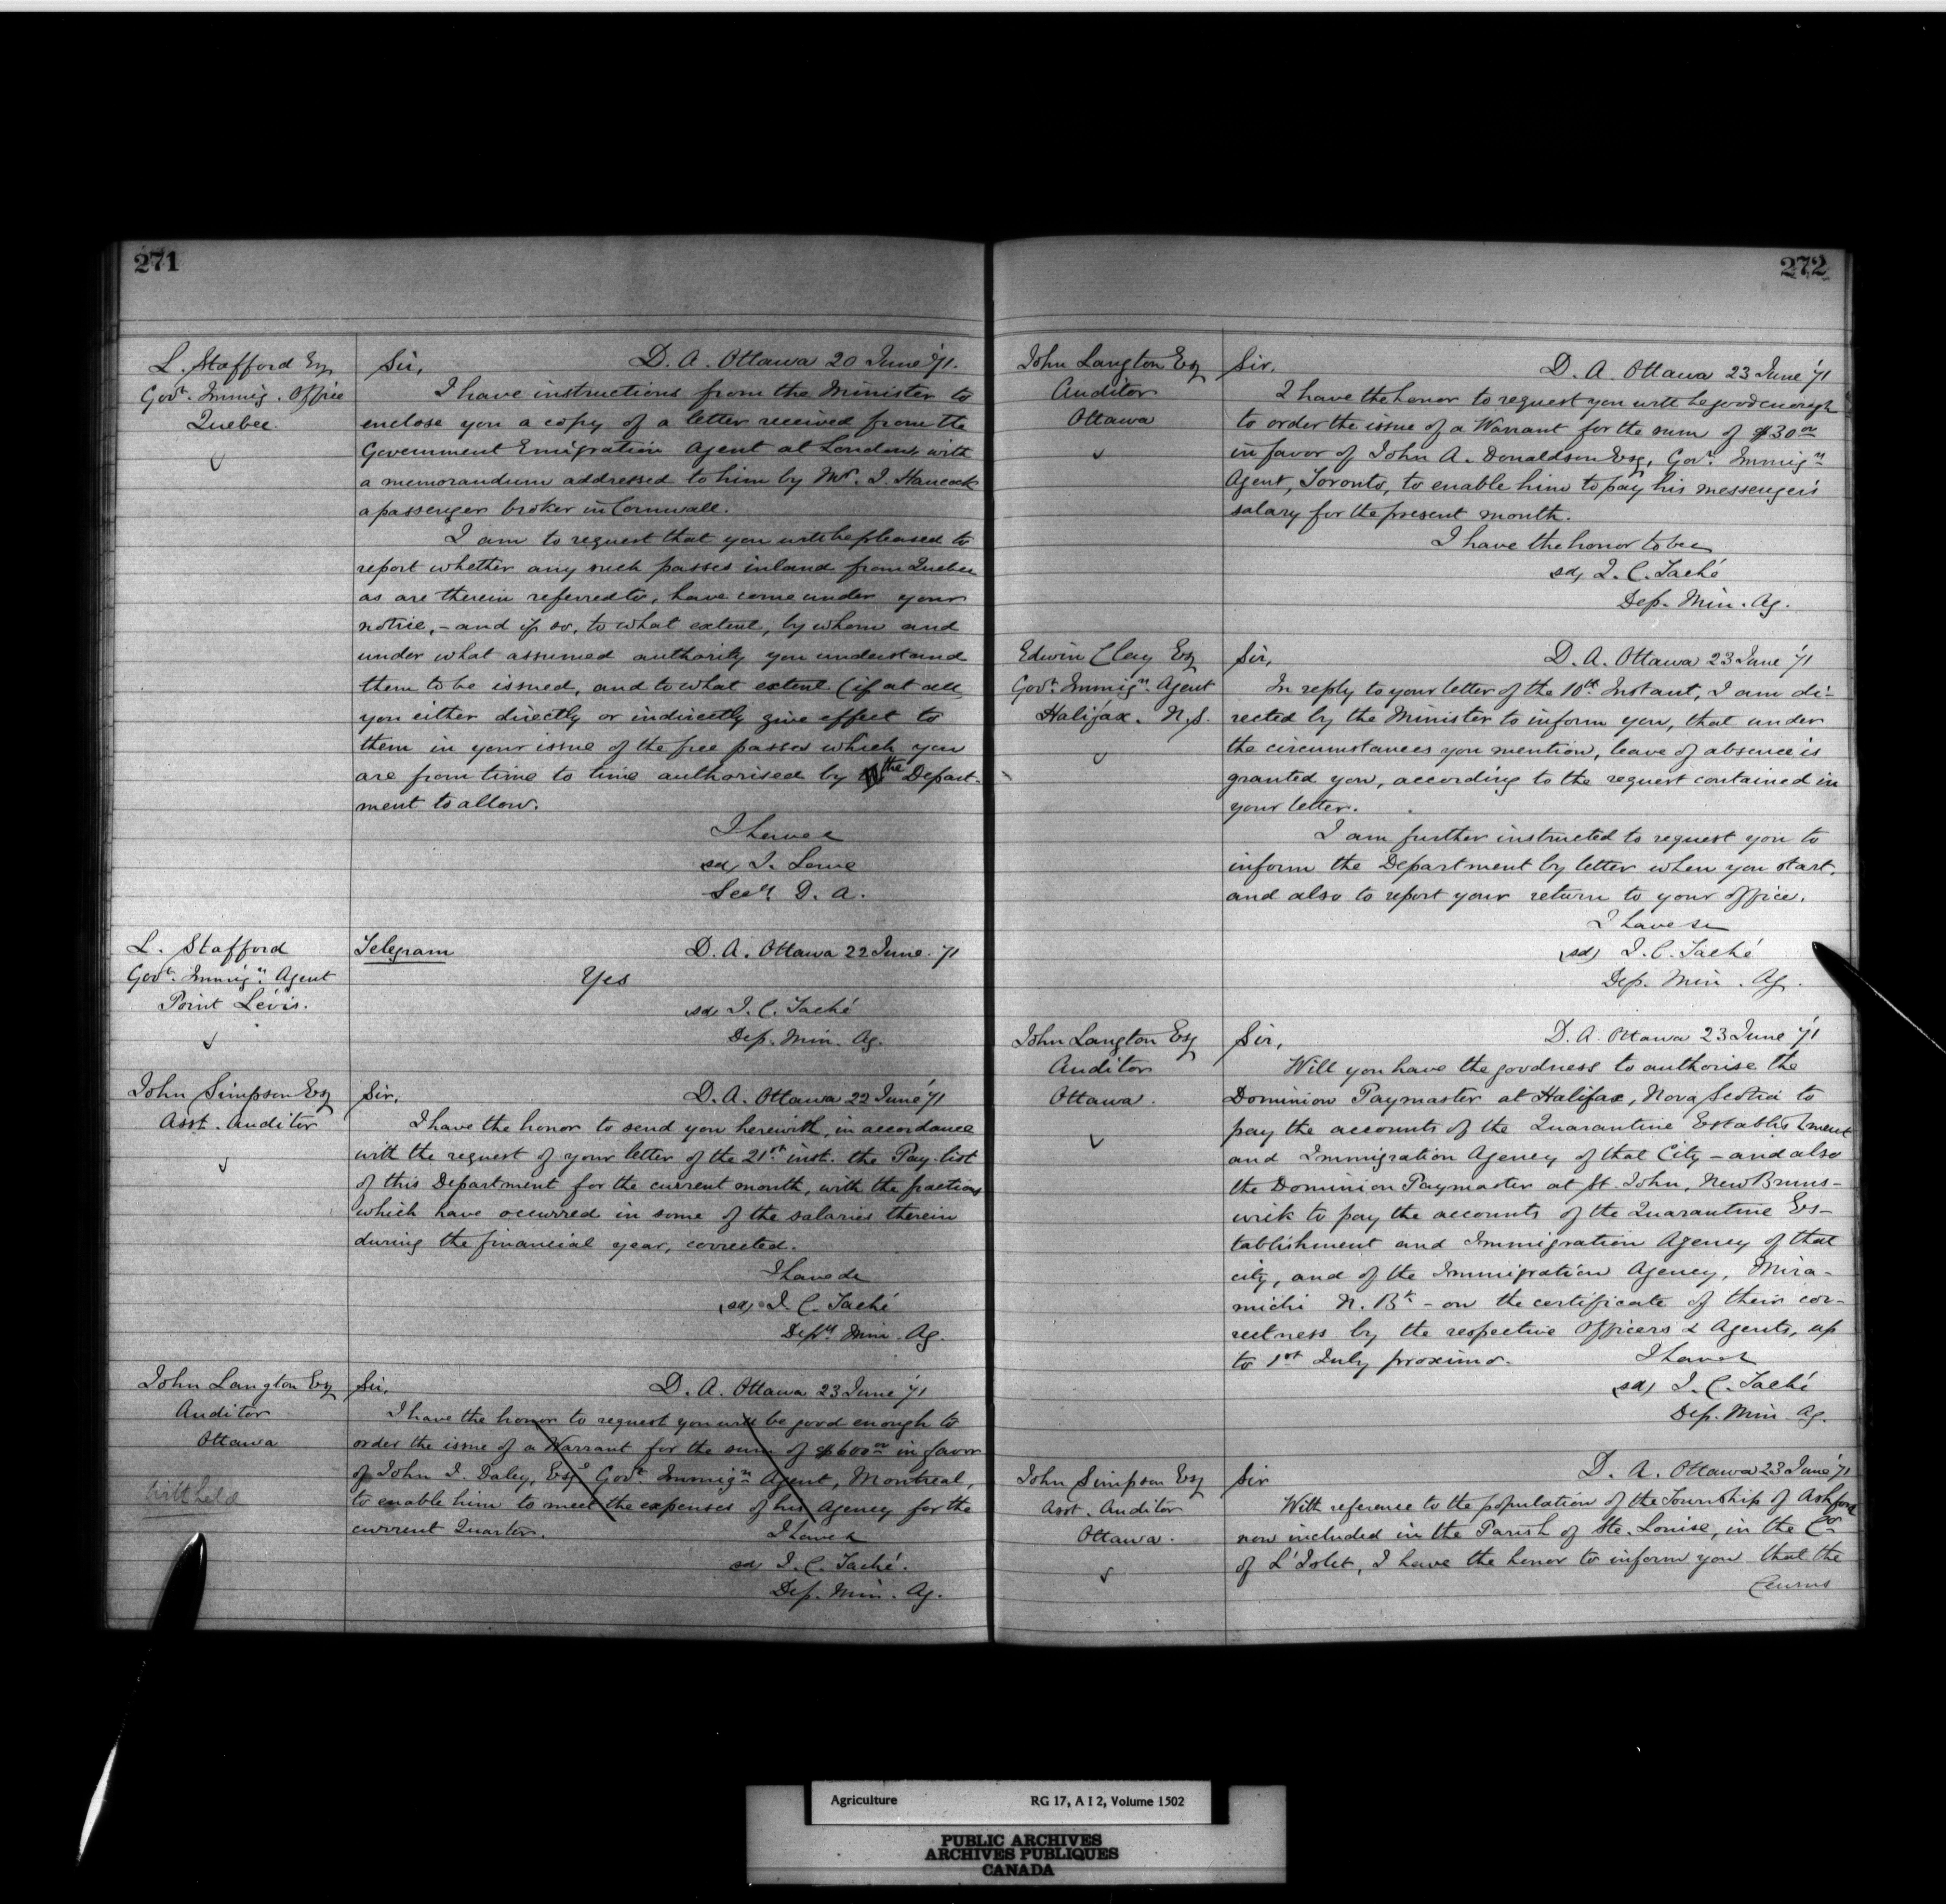 271
L. Stafford Esq
Govt. Immig. Office
Quebec.
Sir, D. A. Ottawa 20 June '71.
I have instructions from the Minister to
enclose you a copy of a letter received from the
Government Emigration Agent at London, with
a memorandum addressed to him by Mr. J. Hancock
a passenger broker in Cornwall.
I am to request that you will be pleased to
report whether any such passes inland from Quebec
as are therein referred to, have come under your
notice, - and if so, to what extent, by whom and
under what assumed authority you understand
them to be issued, and to what extent (if at all
you either directly or indirectly give effect to
them in your issue of the free passes which you
are from time to time authorised by the Depart-
ment to allow.
I have &
sd, J. Lowe
Secy D. A.
L. Stafford
Govt. Immign. Agent
Point Lévis.
Telegram D. A. Ottawa 22 June '71
Yes
sd, J. C. Taché
Dep. Min. Ag.
John Simpson Esq
Asst. Auditor
Sir, D. A. Ottawa 22 June '71
I have the honor to send you herewith, in accordance
with the request of your letter of the 21st inst. the Pay-list
of this Department for the current month, with the fractions
which have occurred in some of the salaries therein
during the financial year, corrected.
I have &c
(sd) J. C. Taché
Depy Min. Ag.
John Langton Esq
Auditor
Ottawa
Withheld
Sir, D. A. Ottawa 23 June '71
I have the honor to request you will be good enough to
order the issue of a Warrant for the sum of $600 00 in favor
of John J. Daley, Esqe Govt. Immign Agent, Montreal,
to enable him to meet the expenses of his Agency for the
current Quarter.
I have &
sd, J. C. Taché.
Dep. Min. Ag.
272
John Langton Esq
Auditor
Ottawa
Sir. D. A. Ottawa 23 June '71
I have the honor to request you will be good enough
to order the issue of a Warrant for the sum of $30 00
in favor of John A. Donaldson Esq, Govt. Immign
Agent, Toronto, to enable him to pay his messenger's
salary for the present month.
I have the honor to be
sd, J. C. Taché
Dep. Min. Ag.
Edwin Clay Esq
Govt Immign. Agent
Halifax. N.S.
Sir, D. A. Ottawa 23 June '71
In reply to your letter of the 10th Instant, I am di-
rected by the Minister to inform you, that under
the circumstances you mention, leave of absence is
granted you, according to the request contained in
your letter.
I am further instructed to request you to
inform the Department by letter when you start,
and also to report your return to your office.
I have &c
(sd) J. C. Taché
Dep. Min. Ag.
John Langton Esq
Auditor
Ottawa.
Sir, D. A. Ottawa 23 June '71
Will you have the goodness to authorise the
Dominion Paymaster at Halifax, Nova Scotia to
pay the accounts of the Quarantine Establishment
and Immigration Agency of that City - and also
the Dominion Paymaster at St. John, New Bruns-
wick to pay the accounts of the Quarantine Es-
tablishment and Immigration Agency of that
city, and of the Immigration Agency, Mira-
michi N. Bk - on the certificate of their cor-
rectness by the respective Officers & Agents, up
to 1st July proximo.
I have &
(sd) J. C. Taché
Dep. Min. Ag.
John Simpson Esq
Asst. Auditor
Ottawa.
Sir D. A. Ottawa 23 June '71
With reference to the population of the Township of Ashford
now included in the Parish of Ste. Louise, in the Co.
of L'Islet, I have the honor to inform you that the
Census
Agriculture RG 17, A I 2, Volume 1502
PUBLIC ARCHIVES
ARCHIVES PUBLIQUES
CANADA